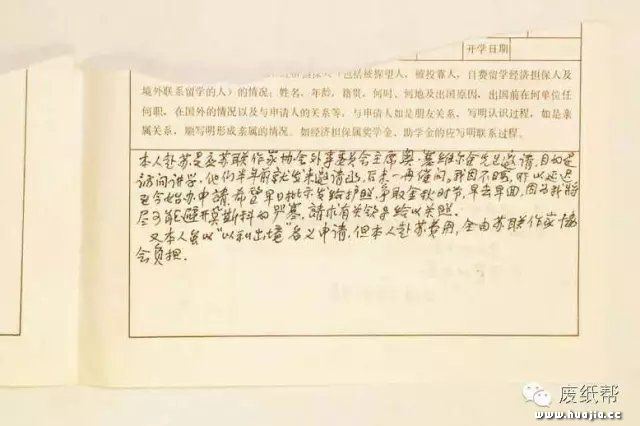 开学日期
（包括被探望人，被投靠人，自费留学经济担保人及
境外联系留学的人）的情况：姓名，年龄，籍贯，何时、何地及出国原因，出国前在何单位任
何职，在国外的情况以及与申请人的关系等，与申请人如是朋友关系，写明认识过程，如是亲
属关系，顺写明形成亲属的情况。如经济担保属奖学金、助学金的应写明联系过程。
本人赴苏是应苏联作家协会外事委员会主席奥·塞维尔 先生邀请，目的是
访问讲学，他们半年前就发来邀请函，后来一再催问，我因不暇，所以延迟
至今始办申请，希望早日批示发给护照，争取金秋时节，早去早回，因为我将
尽可能避开莫斯科的严寒，请求有关领导给以关照。
又本人虽以“以私出境”名义申请，但本人赴苏费用，全由苏联作家协
会负担。
废纸帮
www.huajia.cc